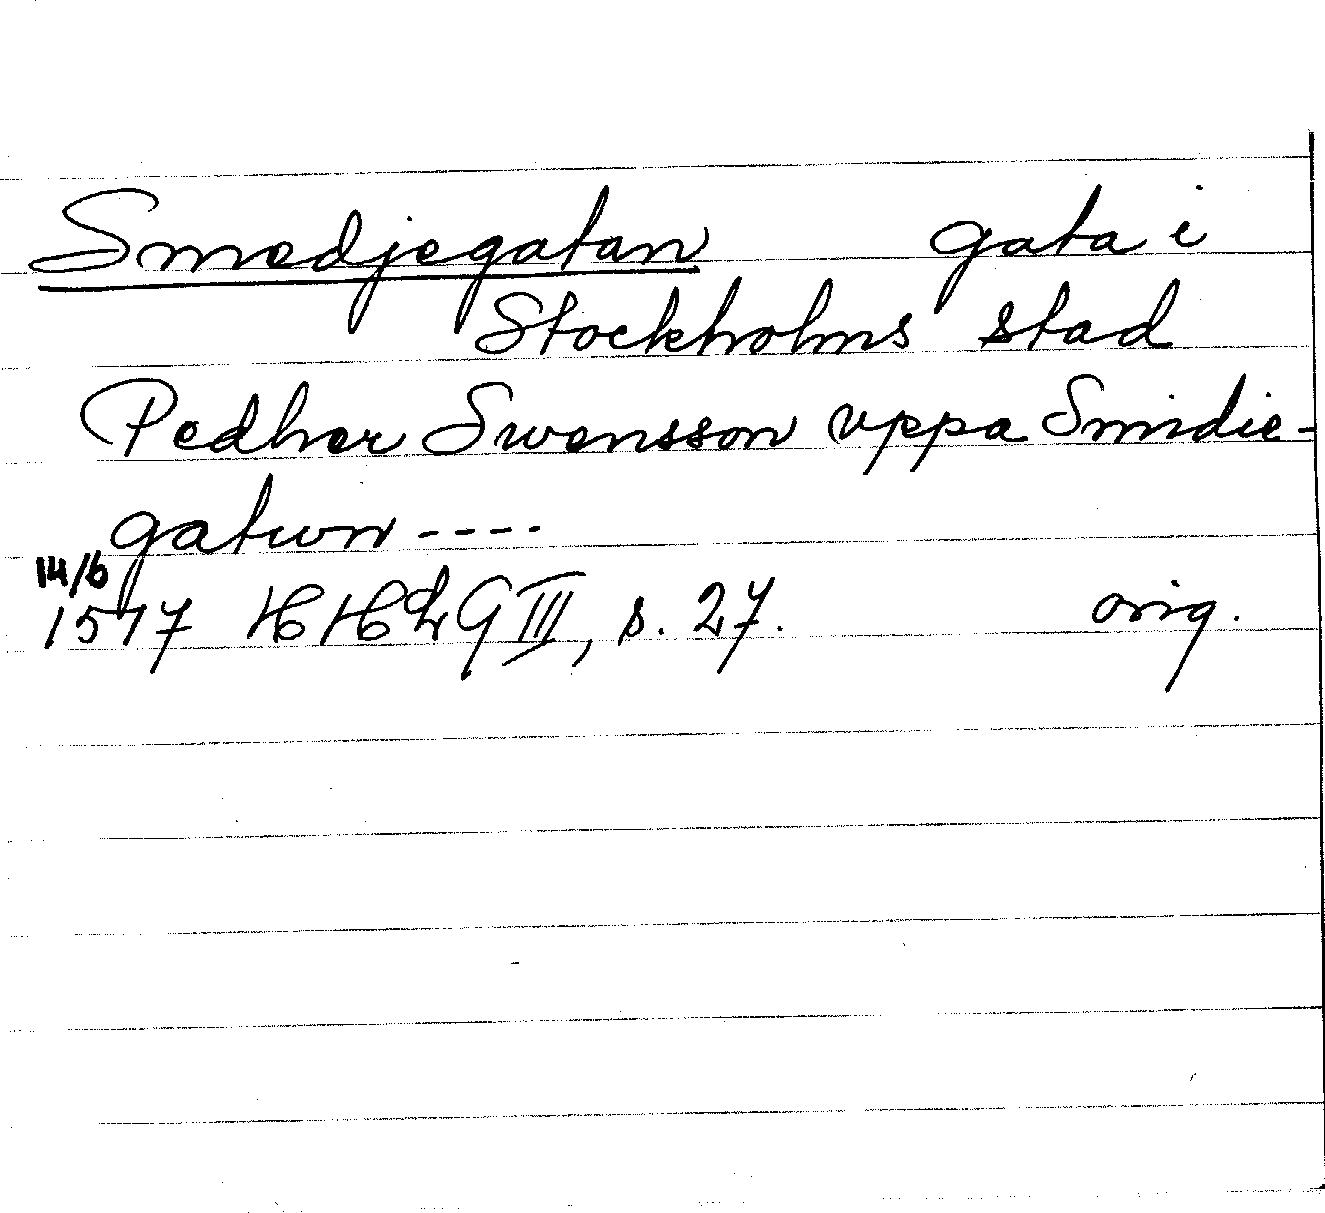 Smedjegatan gata i
Stockholms stad
Pedher Swensson vppa Smidie-
gatwn ----
14/6
1577 HHLG III, s. 27. orig.